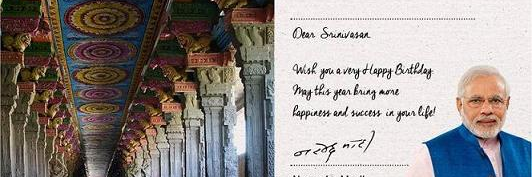 Dear Srinivasan
Wish you a very Happy Birthday.
May this year bring more
happiness and success in your life!